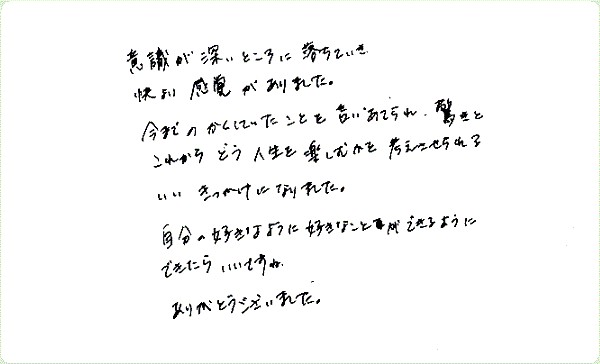 意識が深いところに落ちていき
快よい感覚がありました。
今までのかくしていたことを言いあてられ、驚きと
これからどう人生を楽しむかを考えさせられる
いいきっかけになりました。
自分の好きなように好きなことができるように
できたらいいですね
ありがとうございました。